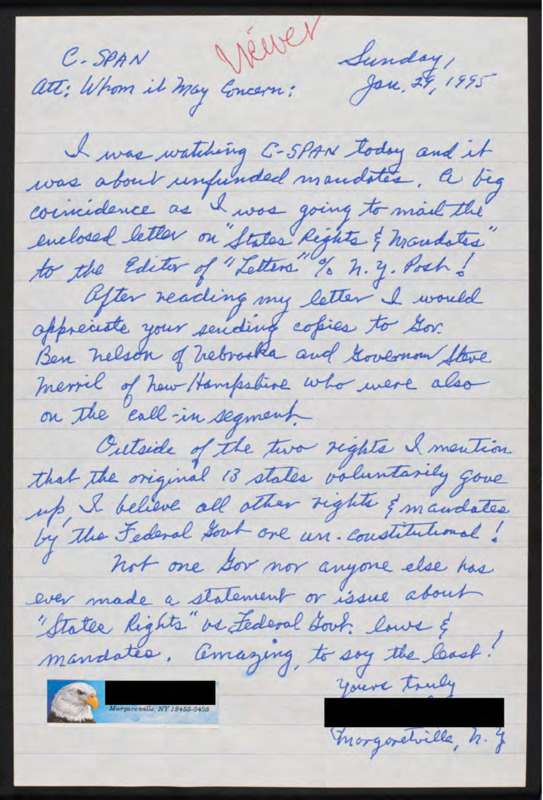 Viewer
C-SPAN
Sunday,
Att: Whom it May Concern:
Jan. 29, 1995
I was watching C-SPAN today and it
was about unfunded mandates. A big
coincidence as I was going to mail the
enclosed letter on "States Rights & Mandates"
to the Editor of "Letters" % N.Y. Post!
After reading my letter I would
appreciate your sending copies to Gov.
Ben Nelson of Nebraska and Governor Steve
Merril of New Hampshire who were also
on the call-in segment.
Outside of the two rights I mention
that the original 13 states voluntarily gave
up, I believe all other rights & mandates
by the Federal Govt are un-constitutional!
Not one Gov nor anyone else has
ever made a statement or issue about
"States Rights" vs Federal Govt. laws &
mandates. Amazing, to say the least!
Yours truly
Margaretville, NY 12455-0403
Margaretville, N.Y